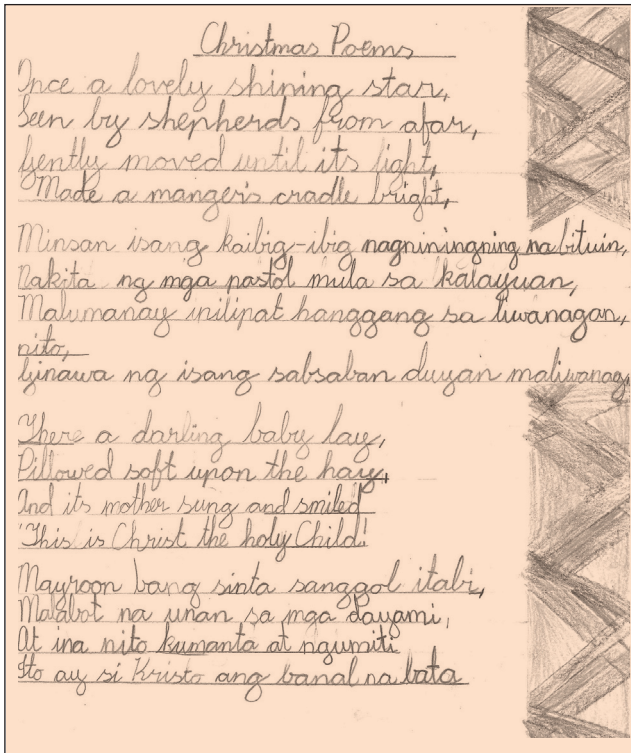 Christmas Poems
Once a lovely shining star,
Seen by shepherds from afar,
Gently moved until its light,
Made a manger's cradle bright,
Minsan isang kaibig-ibig nagniningning na bituin,
Nakita ng mga pastol mula sa kalayuan,
Malumanay inilipat hanggang sa liwanagan,
nito,
Ginawa ng isang sabsaban duyan maliwanag,
There a darling baby lay,
Pillowed soft upon the hay,
And its mother sung and smiled
'This is Christ the holy Child!
Mayroon bang sinta sanggol itabi,
Malabot na unan sa mga dayami,
At ina nito kumanta at ngumiti
Ito ay si Kristo ang banal na bata